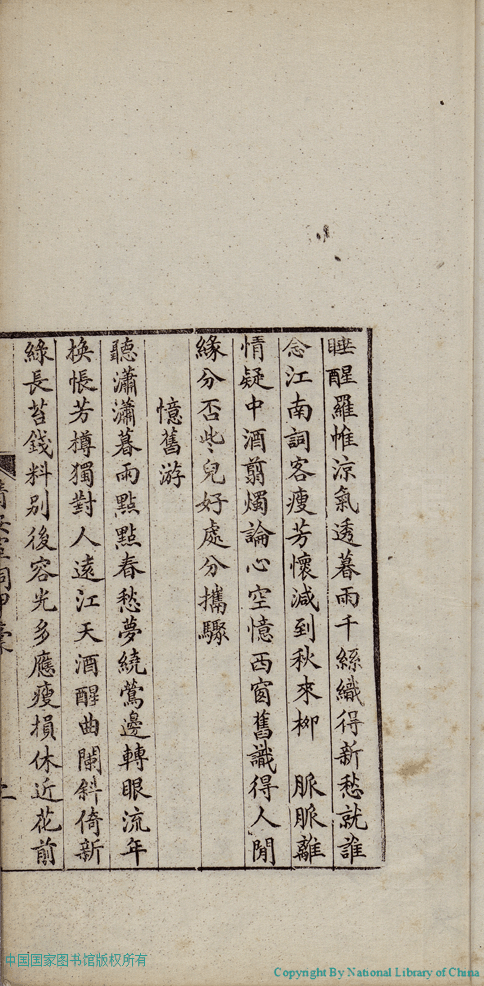 睡醒羅帷涼氣透暮雨千絲織得新愁就誰
念江南詞客瘦芳懷減到秋來柳　脈脈離
情疑中酒翦燭論心空憶西窗舊識得人閒
緣分否些兒好處分攜驟
憶舊游
聽瀟瀟暮雨點點春愁夢繞鶯邊轉眼流年
換悵芳樽獨對人遠江天酒醒曲闌斜倚新
綠長苔錢料別後容光多應瘦損休近花前
中国国家图书馆版权所有
Copyright By National Library of China